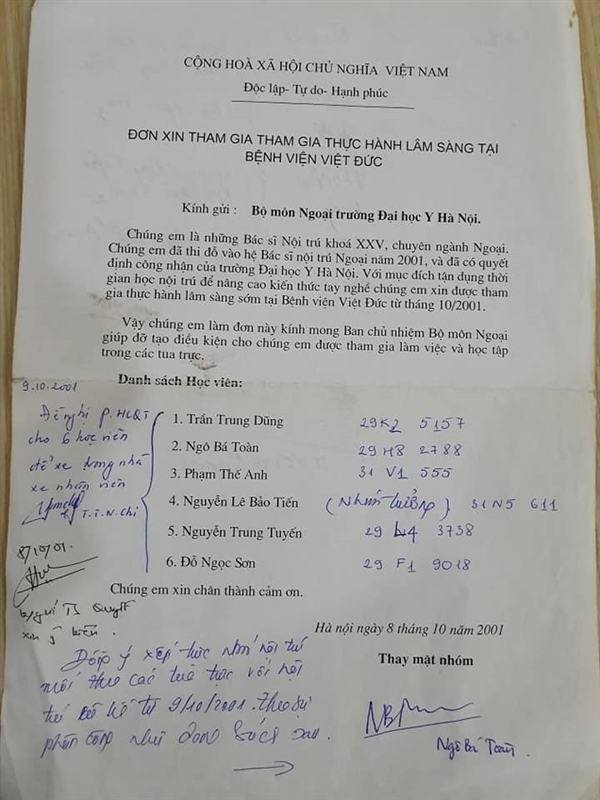 CỘNG HOÀ XÃ HỘI CHỦ NGHĨA VIỆT NAM
Độc lập- Tự do- Hạnh phúc
ĐƠN XIN THAM GIA THAM GIA THỰC HÀNH LÂM SÀNG TẠI
BỆNH VIỆN VIỆT ĐỨC
Kính gửi : Bộ môn Ngoại trường Đại học Y Hà Nội.
Chúng em là những Bác sĩ Nội trú khoá XXV, chuyên ngành Ngoại.
Chúng em đã thi đỗ vào hệ Bác sĩ nội trú Ngoại năm 2001, và đã có quyết
định công nhận của trường Đại học Y Hà Nội. Với mục đích tận dụng thời
gian học nội trú để nâng cao kiến thức tay nghề chúng em xin được tham
gia thực hành lâm sàng sớm tại Bệnh viện Việt Đức từ tháng 10/2001.
Vậy chúng em làm đơn này kính mong Ban chủ nhiệm Bộ môn Ngoại
giúp đỡ tạo điều kiện cho chúng em được tham gia làm việc và học tập
trong các tua trực.
Danh sách Học viên:
1. Trần Trung Dũng 29K2 5157
2. Ngô Bá Toàn 29H8 2788
3. Phạm Thế Anh 31 V1 555
4. Nguyễn Lê Bảo Tiến (Nhóm trưởng) 31N5 611
5. Nguyễn Trung Tuyến 29 L4 3738
6. Đỗ Ngọc Sơn 29 F1 9018
9.10.2001
Đề nghị P. HCQT
cho 6 học viên
để xe trong nhà
xe nhân viên
T.T.N.Chi
8/10/01.
Chúng em xin chân thành cảm ơn.
xin ý kiến.
Hà nội ngày 8 tháng 10 năm 2001
Thay mặt nhóm
Ngô Bá Toàn.
Đồng ý xếp trực nhóm nội trú
mới theo các tua trực với nội
trú cũ kể từ 9/10/2001. theo sự
phân công như danh sách sau.